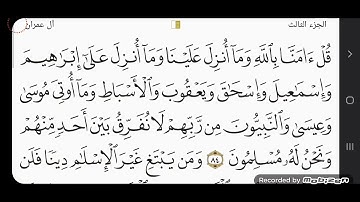 الجزء الثالث
آل عمران
قُلْ ءَامَنَّا بِٱللَّهِ وَمَآ أُنزِلَ عَلَيْنَا وَمَآ أُنزِلَ عَلَىٰٓ إِبْرَٰهِيمَ
وَإِسْمَٰعِيلَ وَإِسْحَٰقَ وَيَعْقُوبَ وَٱلْأَسْبَاطِ وَمَآ أُوتِيَ مُوسَىٰ
وَعِيسَىٰ وَٱلنَّبِيُّونَ مِن رَّبِّهِمْ لَا نُفَرِّقُ بَيْنَ أَحَدٍ مِّنْهُمْ
وَنَحْنُ لَهُۥ مُسْلِمُونَ ٨٤ وَمَن يَبْتَغِ غَيْرَ ٱلْإِسْلَٰمِ دِينًا فَلَن
RECORDED BY
Mobizen